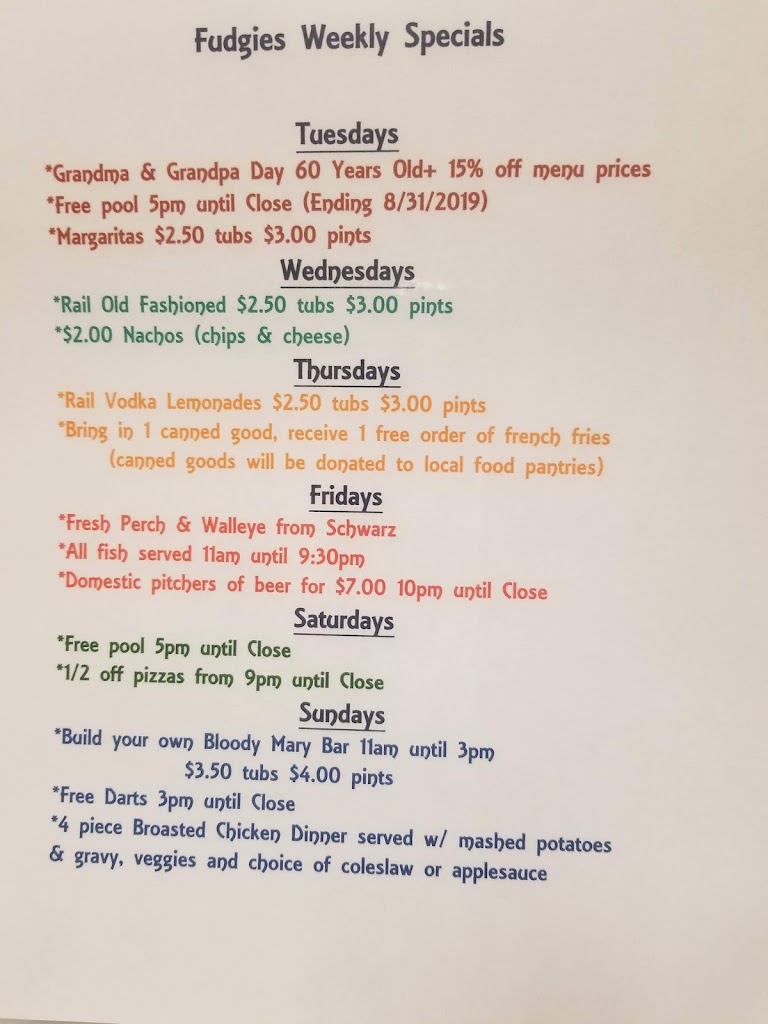 Fudgies Weekly Specials
Tuesdays
*Grandma & Grandpa Day 60 Years Old+ 15% off menu prices
*Free pool 5pm until Close (Ending 8/31/2019)
*Margaritas $2.50 tubs $3.00 pints
Wednesdays
*Rail Old Fashioned $2.50 tubs $3.00 pints
*$2.00 Nachos (chips & cheese)
Thursdays
*Rail Vodka Lemonades $2.50 tubs $3.00 pints
*Bring in 1 canned good, receive 1 free order of french fries
(canned goods will be donated to local food pantries)
Fridays
*Fresh Perch & Walleye from Schwarz
*All fish served 11am until 9:30pm
*Domestic pitchers of beer for $7.00 10pm until Close
Saturdays
*Free pool 5pm until Close
*1/2 off pizzas from 9pm until Close
Sundays
*Build your own Bloody Mary Bar 11am until 3pm
$3.50 tubs $4.00 pints
*Free Darts 3pm until Close
*4 piece Broasted Chicken Dinner served w/ mashed potatoes
& gravy, veggies and choice of coleslaw or applesauce